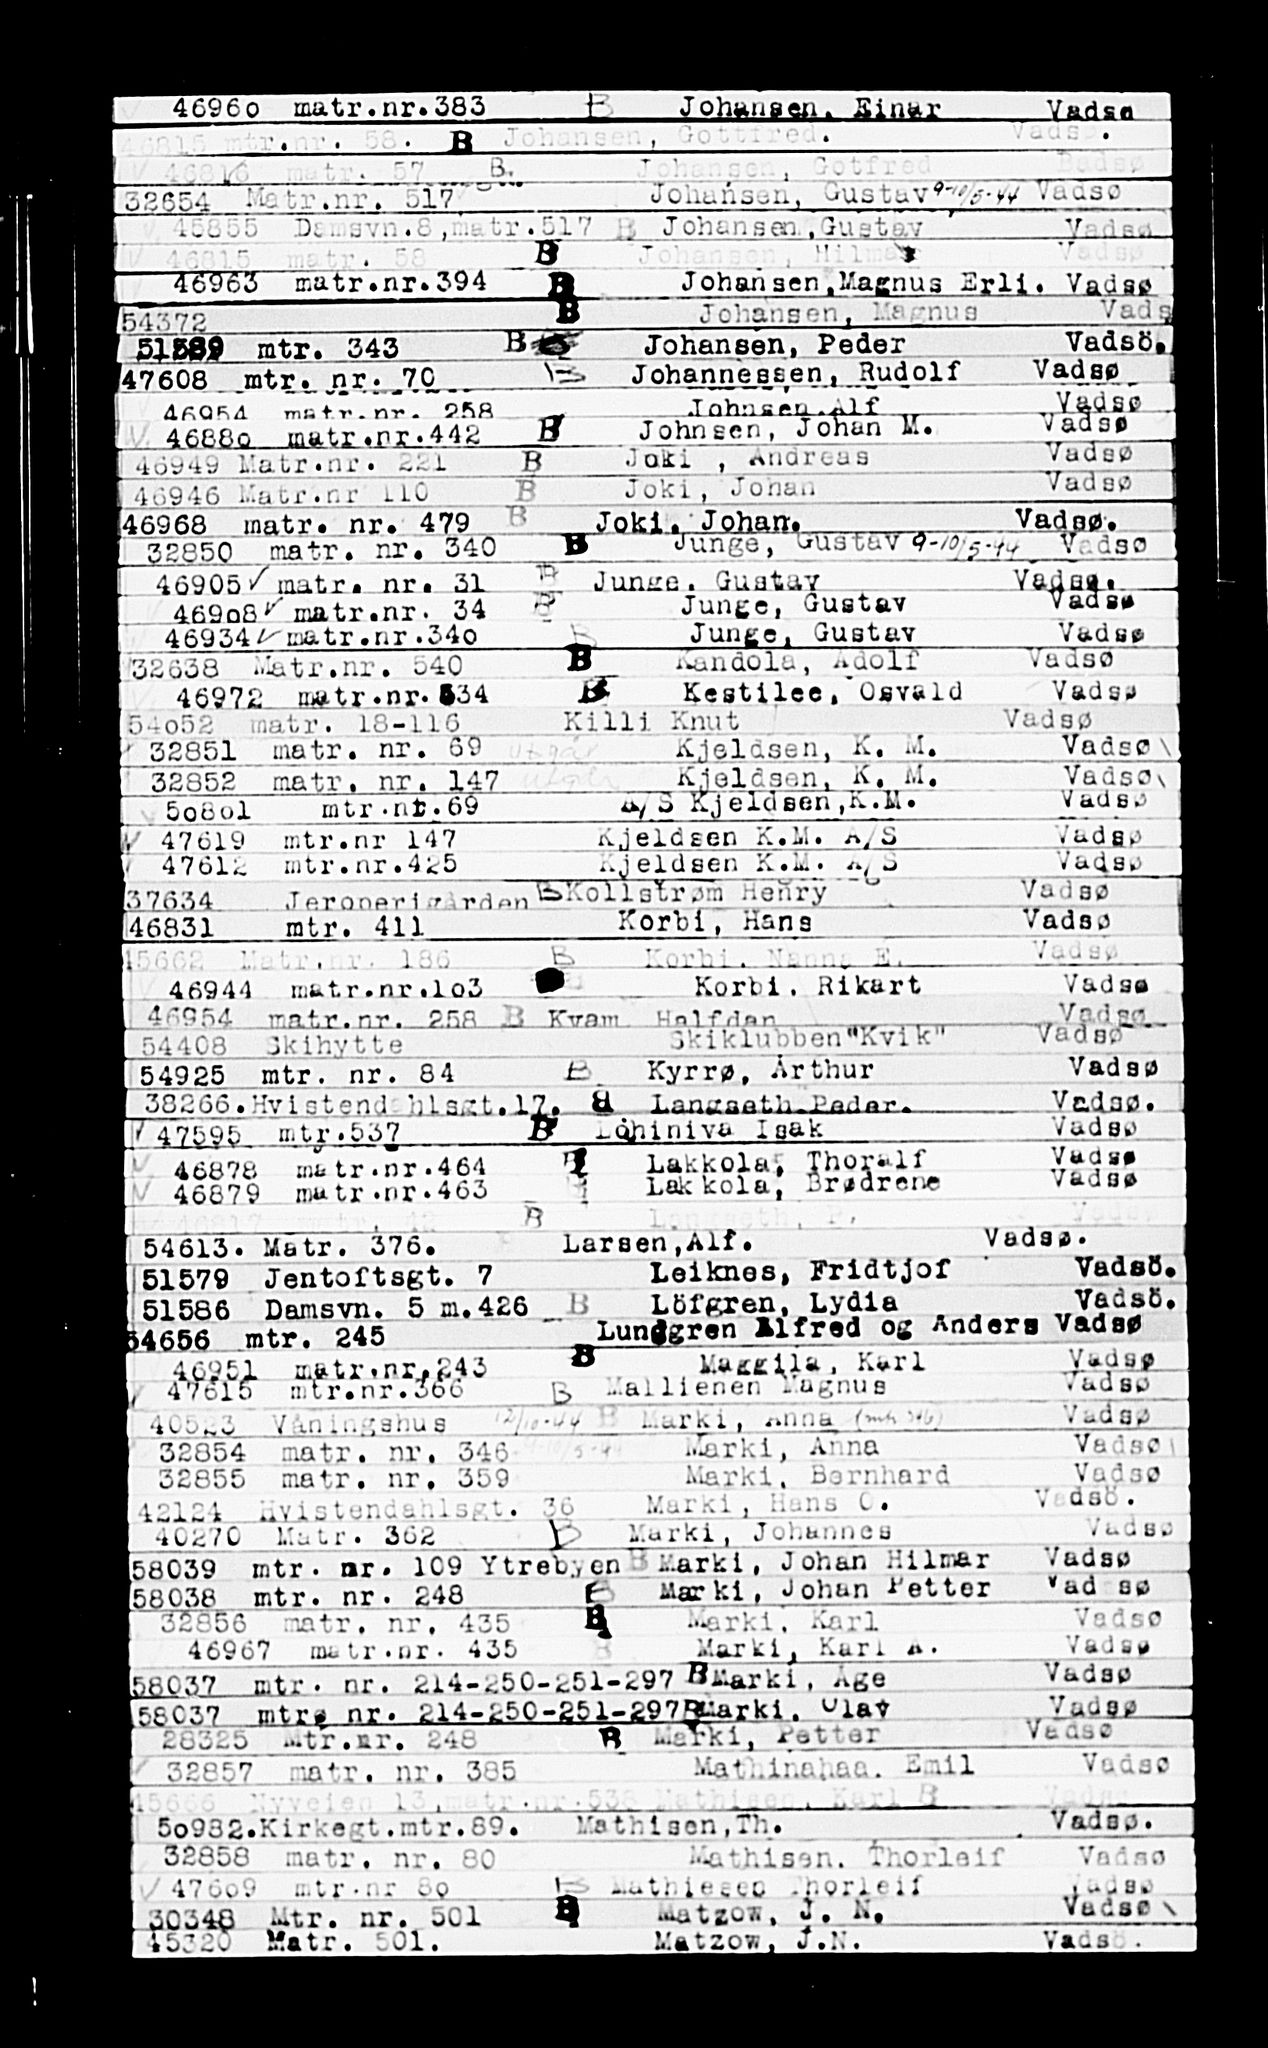 46960 matr.nr.383 B Johansen, Einar Vadsø
46815 mtr.nr. 58. B Johansen, Gottfred. Vadsø.
46816 matr. 57 B. Johansen, Gotfred Badsø
32654 Matr.nr. 517 Johansen, Gustav 9-10/5-44 Vadsø
45855 Damsvn.8,matr.517 B Johansen,Gustav Vadsø
46815 matr. 58 B Johansen, Hilmar Vadsø
46963 matr.nr.394 B Johansen,Magnus Erli. Vadsø
54372 B Johansen, Magnus Vads
51589 mtr. 343 B Johansen, Peder Vadsö.
47608 mtr. nr. 70 B Johannessen, Rudolf Vadsø
46954 matr.nr. 258 Johnsen,Alf Vadsø
46880 matr.nr.442 B Johnsen, Johan M. Vadsø
46949 Matr.nr. 221 B Joki , Andreas Vadsø
46946 Matr.nr 110 B Joki, Johan Vadsø
46968 matr. nr. 479 B Joki, Johan. Vadsø.
32850 matr. nr. 340 B Junge, Gustav 9-10/5-44 Vadsø
46905 ✓ matr. nr. 31 B Junge, Gustav Vadsø.
46908 ✓ matr.nr. 34 B Junge, Gustav Vadsø
46934 ✓ matr.nr.340 B Junge, Gustav Vadsø
32638 Matr.nr. 540 B Kandola, Adolf Vadsø
46972 matr.nr.534 B Kestilee, Osvald Vadsø
54052 matr. 18-116 Killi Knut Vadsø
32851 matr. nr. 69 utgår Kjeldsen, K. M. Vadsø
32852 matr. nr. 147 utgår Kjeldsen, K. M. Vadsø
50801 mtr.nr.69 A/S Kjeldsen,K.M. Vadsø
47619 mtr.nr 147 Kjeldsen K.M. A/S Vadsø
47612 mtr.nr.425 Kjeldsen K.M. A/S Vadsø
37634 Jeronerigården B Kollstrøm Henry Vadsø
46831 mtr. 411 Korbi, Hans Vadsø
45662 Matr.nr. 186 B Korbi, Nanna E. Vadsø
46944 matr.nr.103 Korbi, Rikart Vadsø
46954 matr.nr. 258 B Kvam Halfdan Vadsø
54408 Skihytte Skiklubben"Kvik" Vadsø
54925 mtr. nr. 84 B Kyrrø, Arthur Vadsø
38266.Hvistendahlsgt.17. B Langseth,Peder. Vadsø.
47595 mtr.537 B Lohiniva Isak Vadsø
46878 matr.nr.464 B Lakkola, Thoralf Vadsø
46879 matr.nr.463 Lakkola, Brødrene Vadsø
46817 matr. 42 B Langseth, P. Vadsø
54613. Matr. 376. Larsen,Alf. Vadsø.
51579 Jentoftsgt. 7 Leiknes, Fridtjof Vadsö.
51586 Damsvn. 5 m.426 B Löfgren, Lydia Vadsö.
54656 mtr. 245 Lundgren Alfred og Anders Vadsø
46951 matr.nr.243 B Maggila, Karl Vadsø
47615 mtr.nr.366 B Mallienen Magnus Vadsø
40523 Våningshus 12/10-44 B Marki, Anna (mtr 346) Vadsø
32854 matr. nr. 346 9-10/5-44 Marki, Anna Vadsø
32855 matr. nr. 359 Marki, Bernhard Vadsø
42124 Hvistendahlsgt. 36 Marki, Hans O. Vadsö.
40270 Matr. 362 B Marki, Johannes Vadsø
58039 mtr. nr. 109 Ytrebyen B Marki, Johan Hilmar Vadsø
58038 mtr. nr. 248 B Marki, Johan Petter Vadsø
32856 matr. nr. 435 B Marki, Karl Vadsø
46967 matr.nr. 435 B Marki, Karl A. Vadsø
58037 mtr. nr. 214-250-251-297 B Marki, Åge Vadsø
58037 mtrø nr. 214-250-251-297 B Marki, Olav Vadsø
28325 Mtr.nr. 248 B Marki, Petter Vadsø
32857 matr. nr. 385 Mathinahaa, Emil Vadsø
45666 Nyveien 13,matr.nr.538 Mathisen, Karl B Vadsø
50982.Kirkegt.mtr.89. Mathisen,Th. Vadsø.
32858 matr. nr. 80 Mathisen, Thorleif Vadsø
47609 mtr.nr 80 B Mathiesen Thorleif Vadsø
30348 Mtr. nr. 501 B Matzow, J. N. Vadsø
45320 Matr. 501. Matzow, J.N. Vadsö.